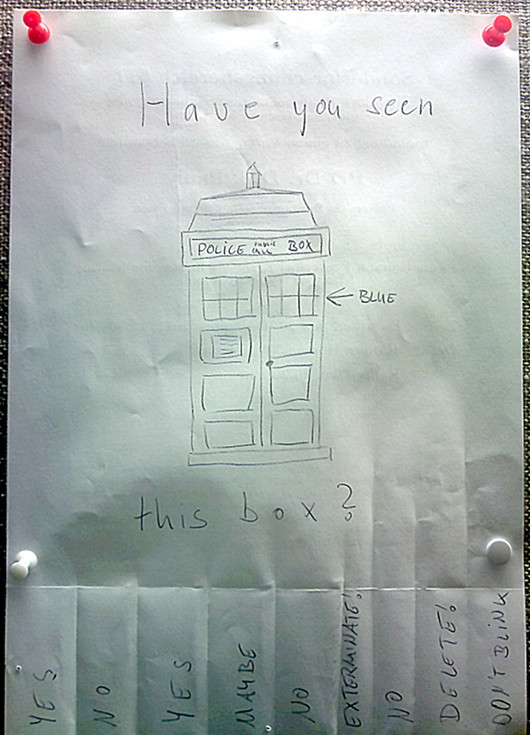 Have you seen
POLICE PUBLIC CALL BOX
BLUE
this box?
YES
NO
YES
MAYBE
NO
EXTERMINATE!
NO
DELETE!
DON'T BLINK